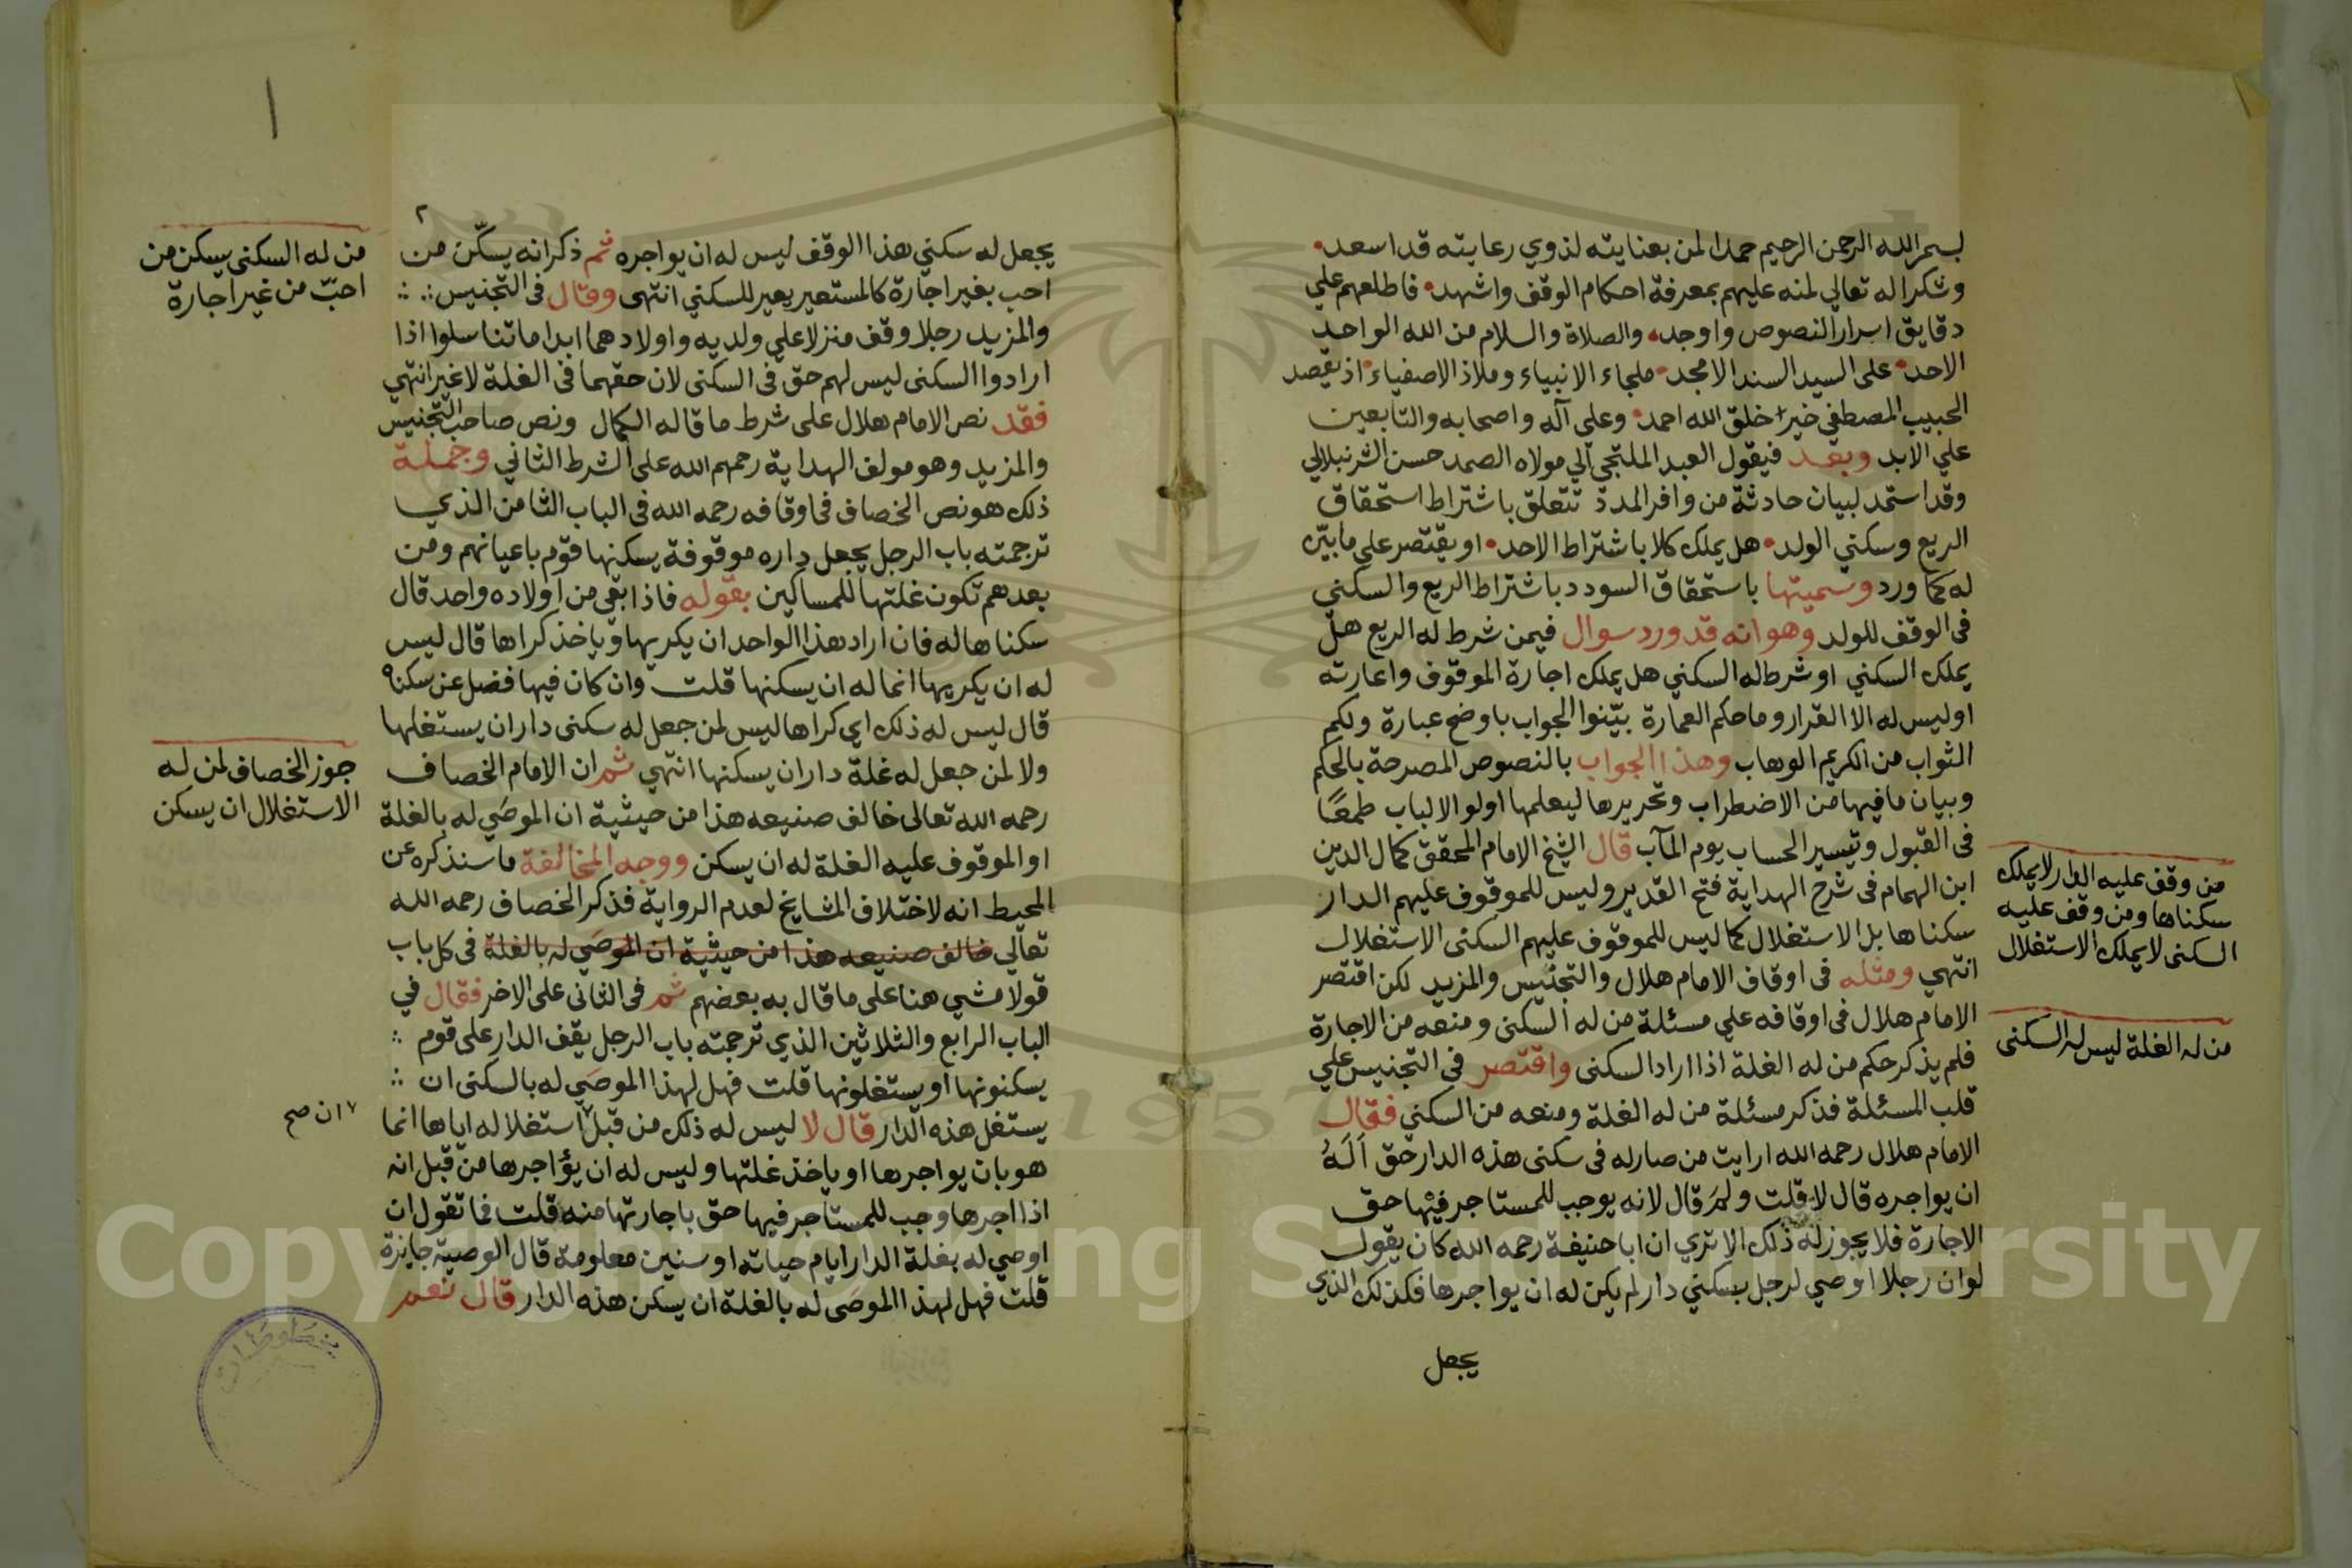 بسم الله الرحمن الرحيم حمدا لمن بعنايته لذوي رعايته قد اسعد
وشكرا له تعالي لمنه عليهم بمعرفة احكام الوقف واشهد فاطلعهم علي
دقايق اسرار النصوص واوجد والصلاة والسلام من الله الواحد
الاحد على السيد السند الامجد ملجاء الانبياء وملاذ الاصفياء اذ يقصد
الحبيب المصطفى خير خلق الله احمد وعلى آله واصحابه والتابعين
علي الابد وبعد فيقول العبد الملتجي الي مولاه الصمد حسن الشرنبلالي
وقد استمد لبيان حادثة من وافر المدد تتعلق باشتراط استحقاق
الريع وسكني الولد هل يملك كلا باشتراط الاحد او يقتصر على ما بيّن
له كما ورد وسميتها باستحقاق السودد باشتراط الريع والسكني
في الوقف للولد وهو انه قد ورد سوال فيمن شرط له الريع هل
يملك السكني او شرط له السكني هل يملك اجارة الموقوف واعارته
او ليس له الا القرار وما حكم العمارة بيّنوا الجواب باوضح عبارة ولكم
الثواب من الكريم الوهاب وهذا الجواب بالنصوص المصرحة بالحكم
وبيان ما فيها من الاضطراب وتحريرها ليعلمها اولو الالباب طمعًا
في القبول وتيسير الحساب يوم المآب قال الشيخ الامام المحقق كمال الدين
ابن الهمام في شرح الهداية فتح القدير وليس للموقوف عليهم الدار
سكناها بل الاستغلال كما ليس للموقوف عليهم السكنى الاستغلال
انتهي ومثله في اوقاف الامام هلال والتجنيس والمزيد لكن اقتصر
الامام هلال في اوقافه علي مسئلة من له السكنى ومنعه من الاجارة
فلم يذكر حكم من له الغلة اذا اراد السكنى واقتصر في التجنيس علي
قلب المسئلة فذكر مسئلة من له الغلة ومنعه من السكني فقال
الامام هلال رحمه الله ارايت من صار له في سكنى هذه الدار حق اَلَهُ
ان يواجره قال لا قلت ولم قال لانه يوجب للمستاجر فيها حق
الاجارة فلا يجوز له ذلك الا تري ان ابا حنيفة رحمه الله كان يقول
لو ان رجلا اوصي لرجل بسكني دار لم يكن له ان يواجرها فكذلك الذي
يجعل
من وقف عليه الدار لا يملك
سكناها ومن وقف عليه
السكنى لا يملك الاستغلال
من له الغلة ليس له السكنى
١
٢
يجعل له سكني هذا الوقف ليس له ان يواجره ثم ذكر انه يسكّن من
احب بغير اجارة كالمستعير يعير للسكني انتهى وقال في التجنيس
والمزيد رجلا وقف منزلا علي ولديه واولادهما ابدا ما تناسلوا اذا
ارادوا السكنى ليس لهم حق في السكنى لان حقهما في الغلة لا غير انتهي
فقد نص الامام هلال على شرط ما قاله الكمال ونص صاحب التجنيس
والمزيد وهو مولف الهداية رحمهم الله على الشرط الثاني وجملة
ذلك هو نص الخصاف في اوقافه رحمه الله في الباب الثامن الذي
ترجمته باب الرجل يجعل داره موقوفة يسكنها قوم باعيانهم ومن
بعدهم تكون غلتها للمساكين بقوله فاذا بقي من اولاده واحد قال
سكناها له فان اراد هذا الواحد ان يكريها وياخذ كراها قال ليس
له ان يكريها انما له ان يسكنها قلت وان كان فيها فضل عن سكناه
قال ليس له ذلك اي كراها ليس لمن جعل له سكنى دار ان يستغلها
ولا لمن جعل له غلة دار ان يسكنها انتهي ثم ان الامام الخصاف
رحمه الله تعالى خالف صنيعه هذا من حيثية ان الموصَي له بالغلة
او الموقوف عليه الغلة له ان يسكن ووجه المخالفة ما سنذكره عن
المحيط انه لاختلاف المشايخ لعدم الرواية فذكر الخصاف رحمه الله
تعالي خالف صنيعه هذا من حيثية ان الموصَي له بالغلة في كل باب
قولا مشي هنا على ما قال به بعضهم ثم في الثاني على الاخر فقال في
الباب الرابع والثلاثين الذي ترجمته باب الرجل يقف الدار على قوم
يسكنونها او يستغلونها قلت فهل لهذا الموصَي له بالسكنى ان
يستغل هذه الدار قال لا ليس له ذلك من قبل استغلاله اياها انما
هو بان يواجرها او ياخذ غلتها وليس له ان يؤاجرها من قبل انه
اذا اجرها وجب للمستاجر فيها حق باجارتها منه قلت فما تقول ان
اوصي له بغلة الدار ايام حياته او سنين معلومة قال الوصية جايزة
قلت فهل لهذا الموصَى له بالغلة ان يسكن هذه الدار قال نعم
من له السكنى يسكن من
احبّ من غير اجارة
جوز الخصاف لمن له
الاستغلال ان يسكن
ان صح
مخطوطات
Copyright © King Saud University
1957